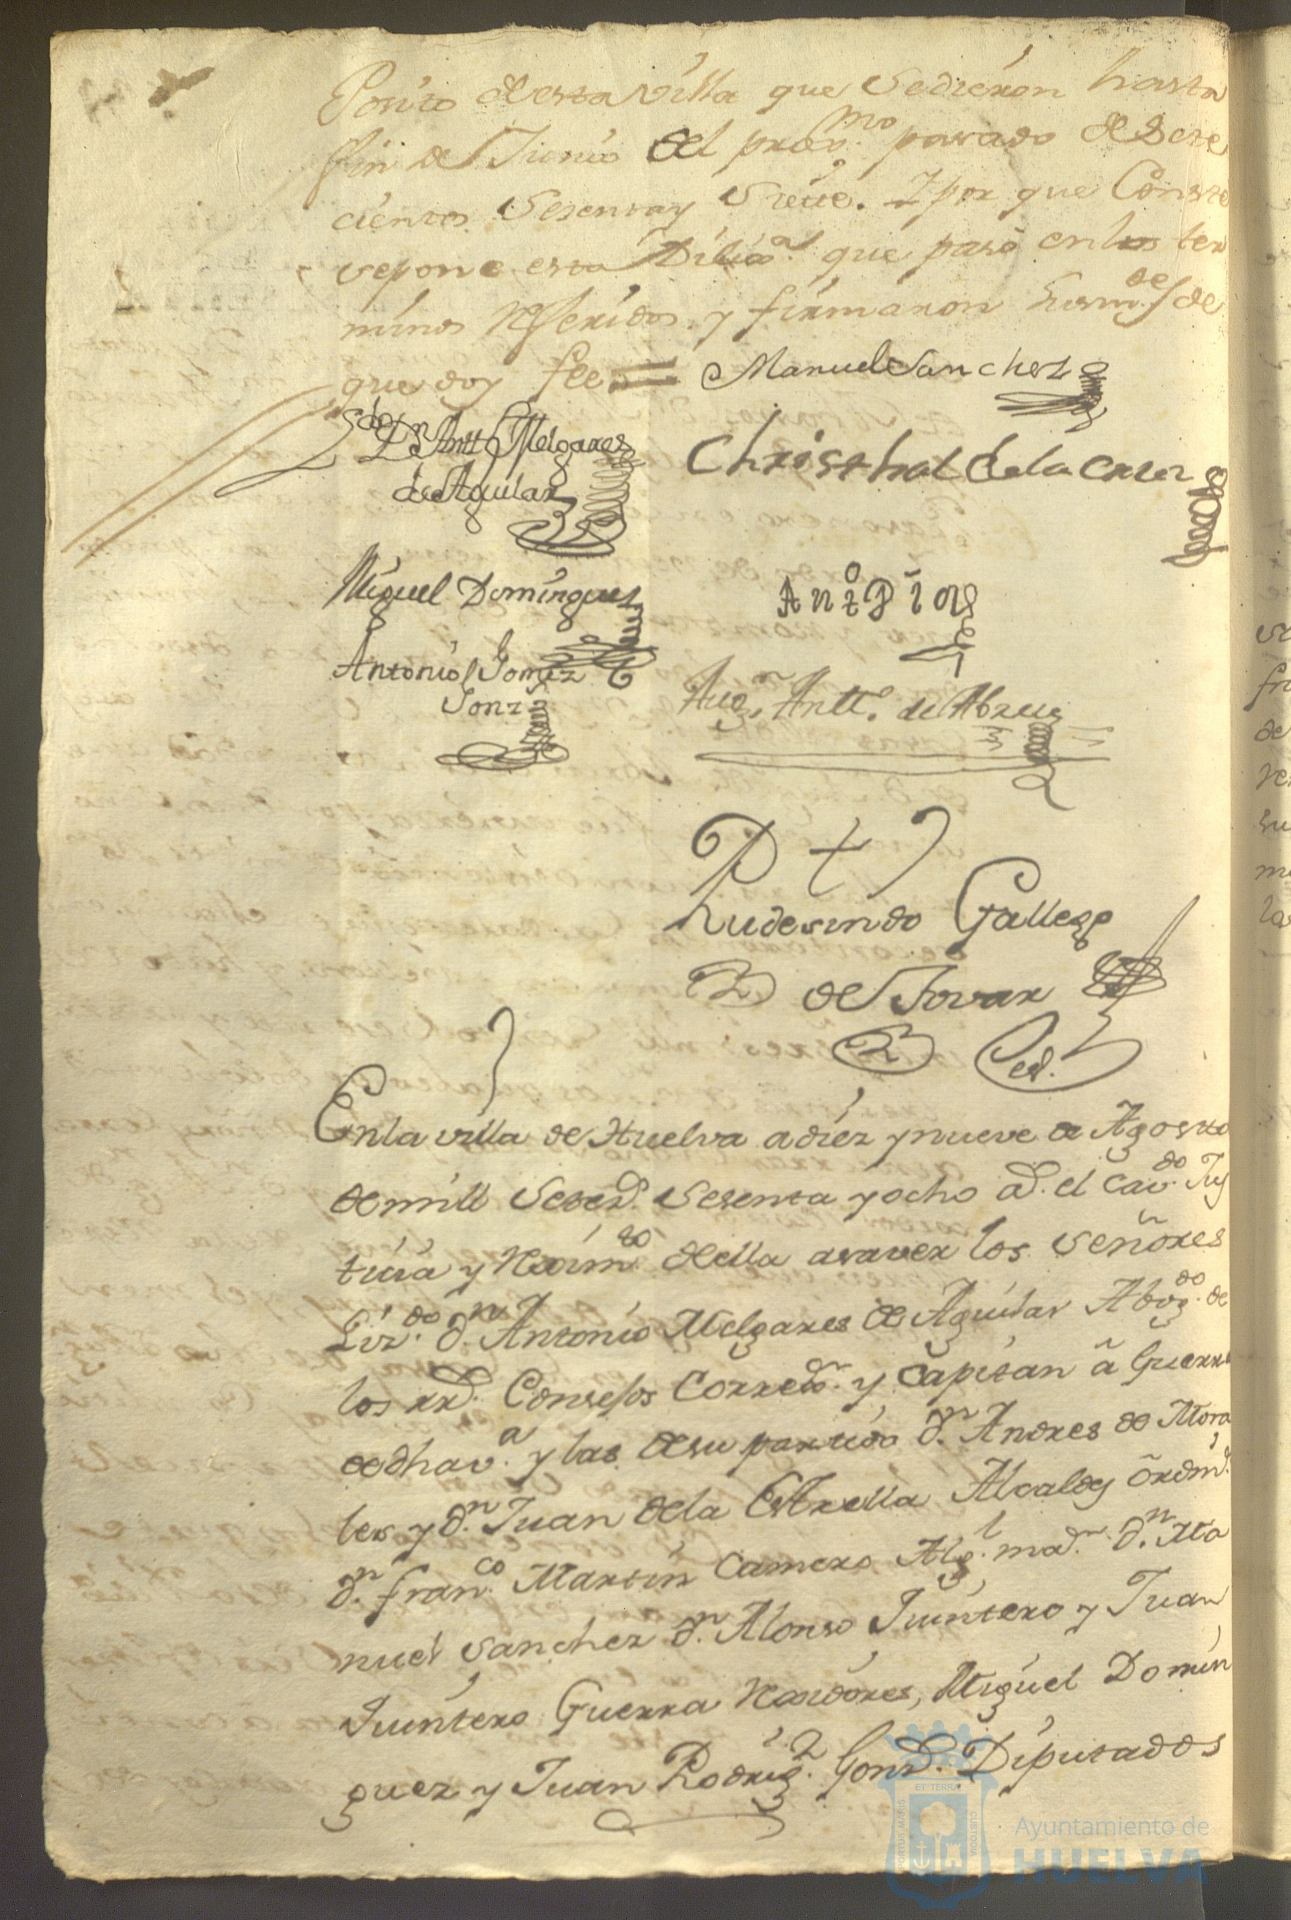 Posito de esta Villa que se dieron hasta
fin de Junio del prox.mo pasado de Sete
cientos Sesenta y Siete. Y por que Conste
se pone esta Dilix.a que pasó en los ter
minos referidos, y firmaron sus m.des de
que doy fee = Manuel Sanchez
D.n Antt.o Melgarez
de Aguilar
Christhal de la Cruz
Miguel Dominguez
Ant.o Pioz
Antonio Gomez
Gonz
Aug.n Antt.o de Abreu
Rudesindo Gallego
de Tovar
En la villa de Huelva a diez y nueve de Agosto
de mill Setez.s Sesenta y ocho a.s el Cav.do Jus
ticia y Reximto della a saver los Señores
Liz.do d.n Antonio Melgares de Aguilar Abog.do de
los RR.s Consejos Corred.r y Capitan â Guerra
de dha v.a y las de su partido d.n Andres de Mora
les y d.n Juan de la Estrella Alcaldes ordin.s
d.n Fran.co Martin Camero Alg.l ma.r d.n Ma
nuel Sanchez d.n Alonso Quintero y Juan
Quintero Guerra Rexidores, Miguel Domin
guez y Juan Rodrig.z Gonz.s Diputados
PORTUS MARIS
ET TERRAE
CUSTODIA
Ayuntamiento de
HUELVA